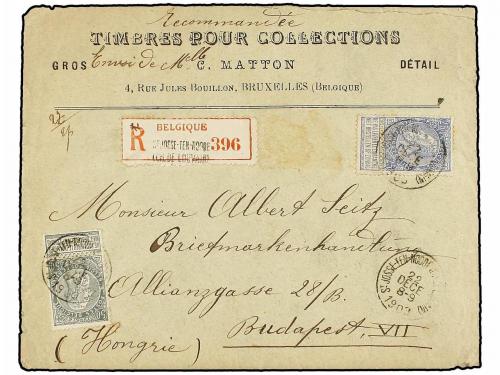 Recommandée
TIMBRES POUR COLLECTIONS
GROS Envoi de Mlle C. MATTON DÉTAIL
4, RUE JULES BOUILLON, BRUXELLES (Belgique)
R BELGIQUE
ST-JOSSE-TEN-NOODE
396
Monsieur Albert Seitz
Briefmarkenhandlung
Allianzgasse 28/B.
Budapest VII
(Hongrie)
ST-JOSSE-TEN-NOODE
22
DECE
8-9
1902